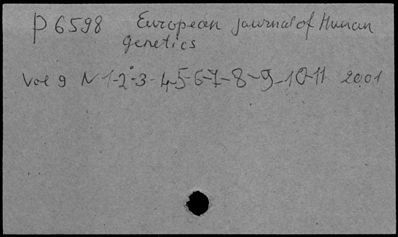 P 6598 European journal of Human
genetics
Vol 9 N 1-2-3-4-5-6-7-8-9-10-11 2001